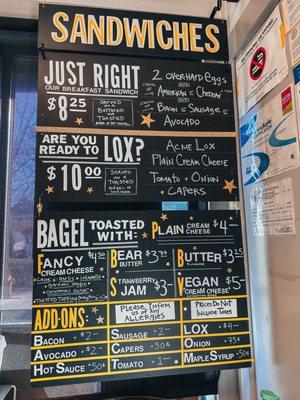 SANDWICHES
JUST RIGHT
OUR BREAKFAST SANDWICH
$8.25
SERVED ON A BUTTERED TOASTED
2 OVERHARD EGGS
AMERICAN OR CHEDDAR
BACON OR SAUSAGE OR
AVOCADO
ARE YOU
READY TO LOX?
$10.00
SERVED ON A TOASTED
ACME LOX
PLAIN CREAM CHEESE
TOMATO + ONION
+ CAPERS
BAGEL TOASTED WITH:
PLAIN CREAM CHEESE $4-
FANCY CREAM CHEESE $4.50
BEAR BUTTER $3.75
BUTTER $3.25
STRAWBERRY JAM $3-
VEGAN "CREAM CHEESE" $5-
ADD-ONS:
PLEASE INFORM US OF ANY ALLERGIES
PRICES DO NOT INCLUDE TAX
BACON $2-
SAUSAGE $2-
LOX $4-
AVOCADO $2-
CAPERS 50¢
ONION 50¢
HOT SAUCE 50¢
TOMATO $1-
MAPLE SYRUP 50¢
75¢